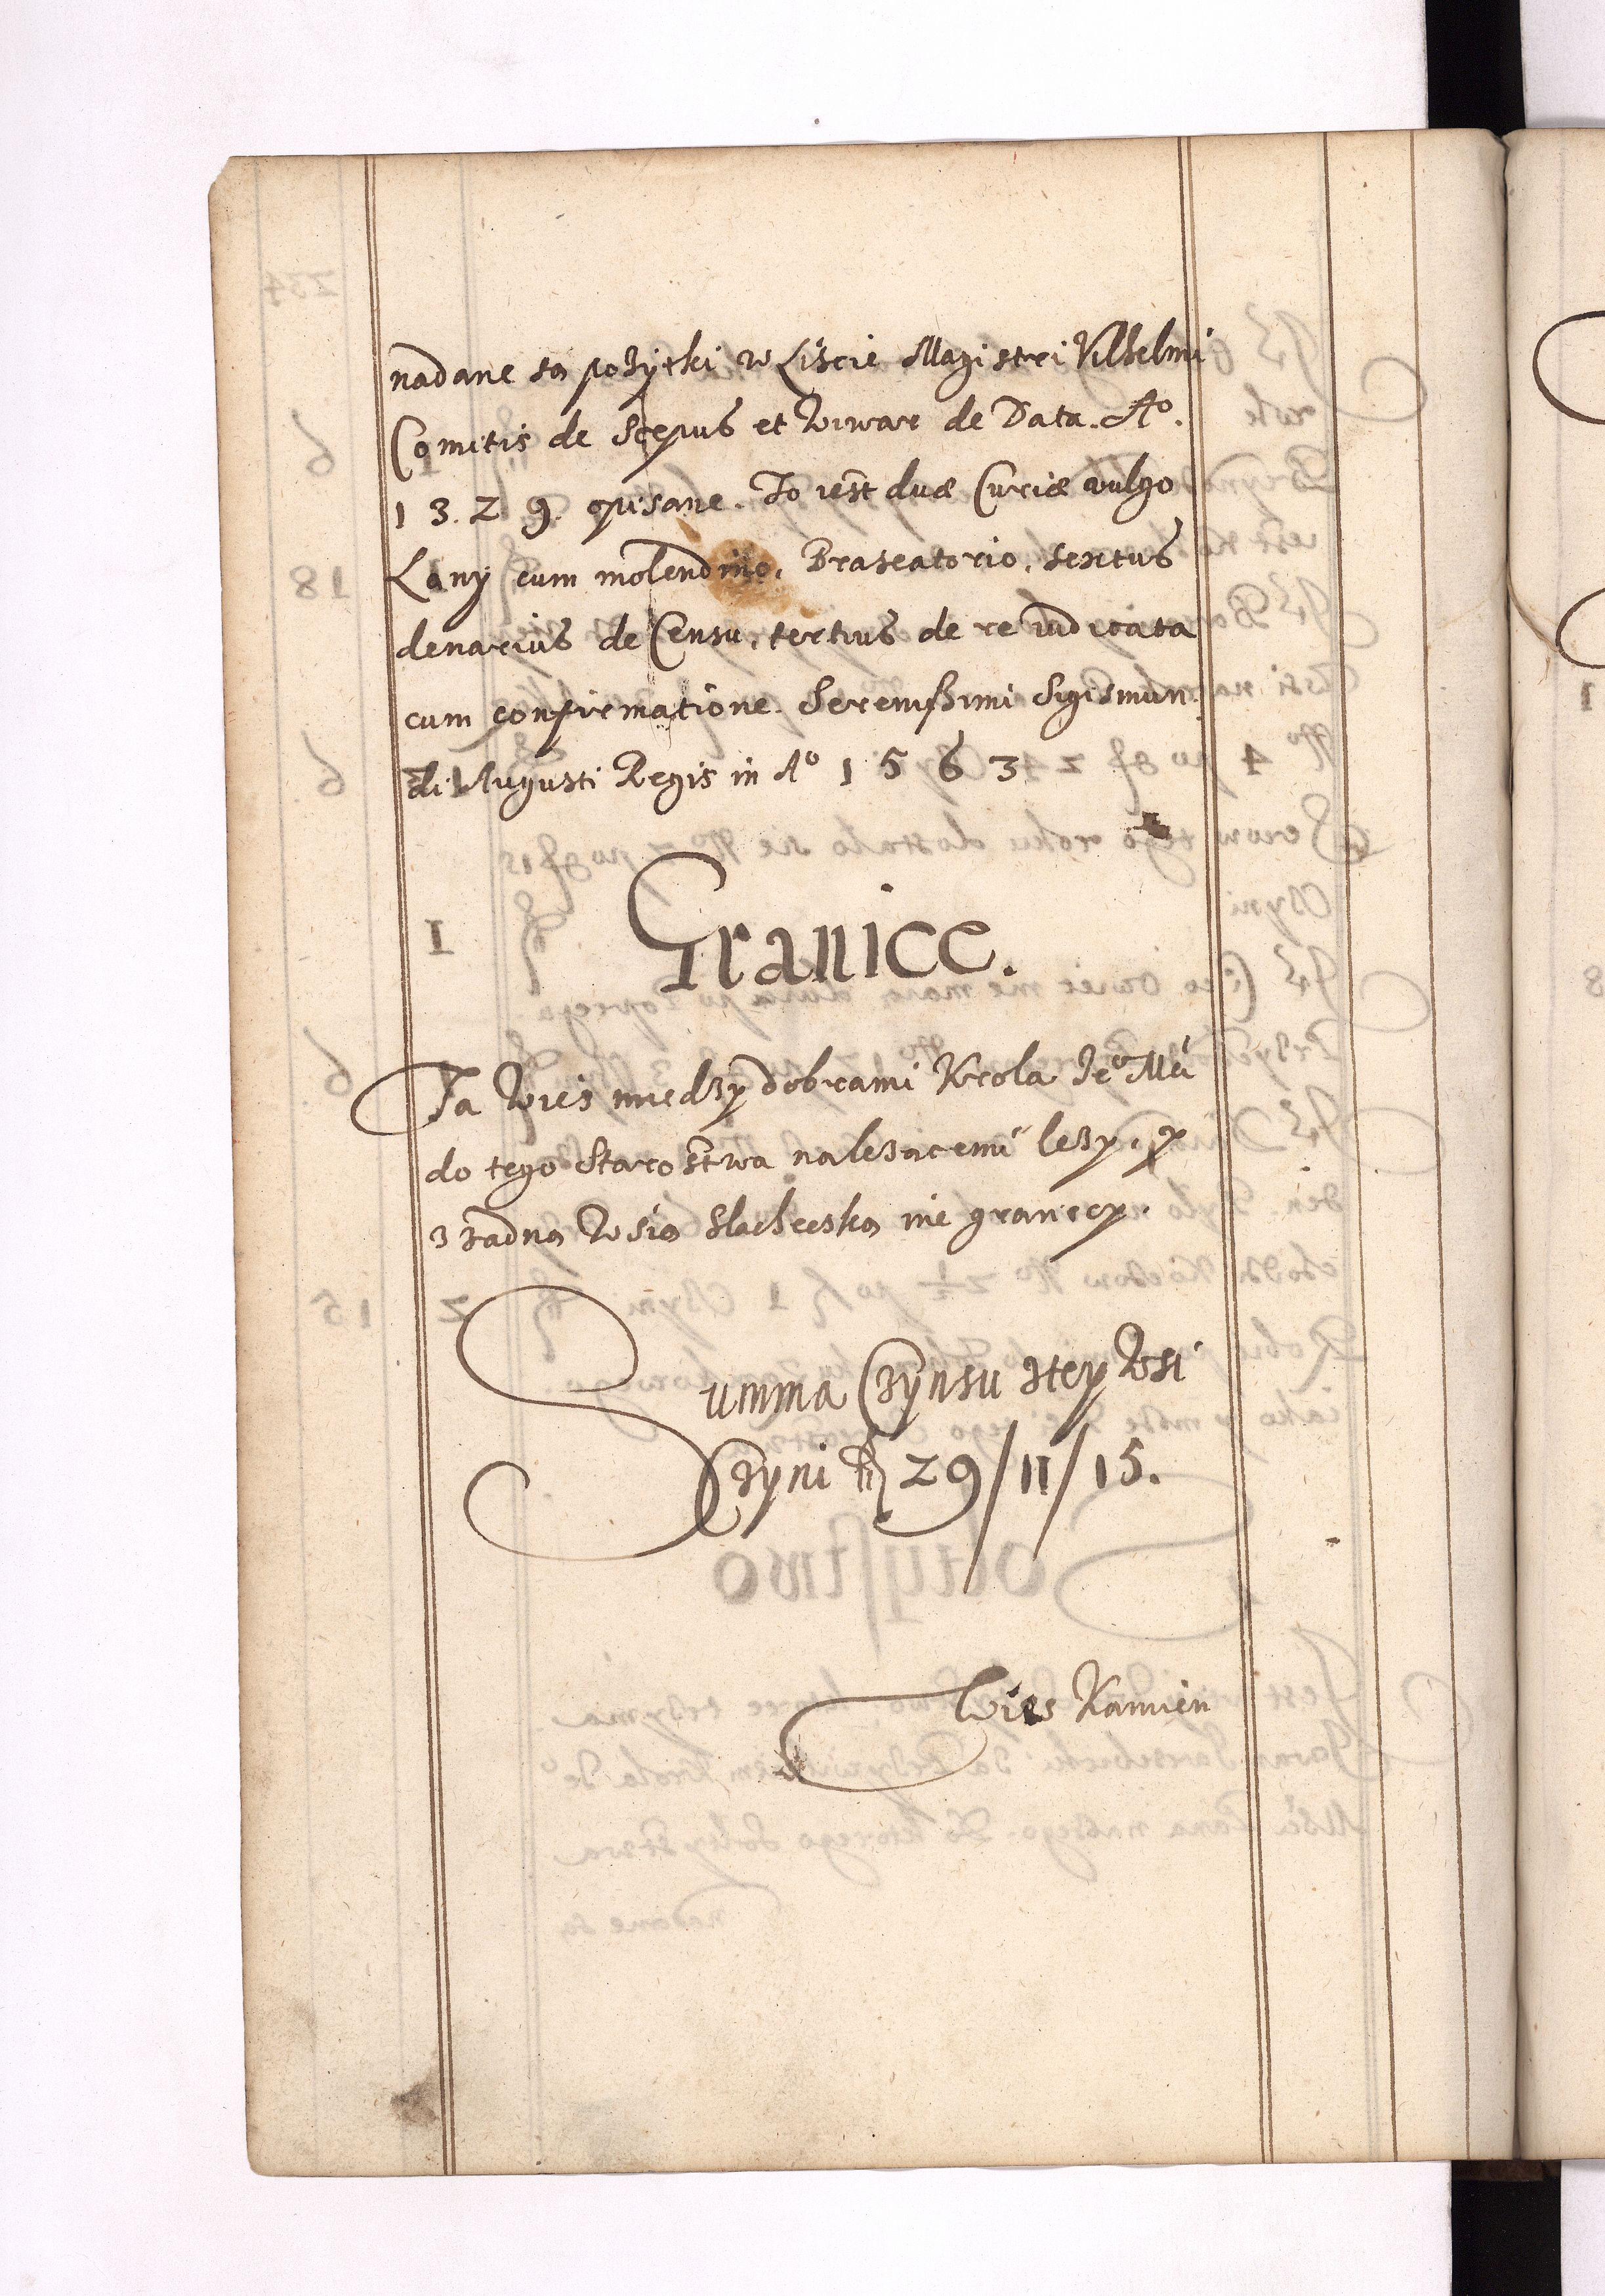 nadane są pożytki w Liscie Magistri Vilhelmi
Comitis de Scepus et Viwar de Data. Aº.
1 3. 2 9. opisane. To iest duæ Curiæ vulgo
Łany cum molendino, Braseatorio, sextus
denarius de Censu, tertius de re iudicata
cum confirmatione. Serenißimi Sigismun
di Augusti Regis in Aº 1 5 6 3
Granice.
Ta Wies miedzy dobrami Krola Jeº Mći
do tego Starostwa należącemi leży, y
z żadną Wsią Slachecską nie graniczy.
Summa Czynsu ztey Wsi
Czyni 29/11/15.
Wies Kamien